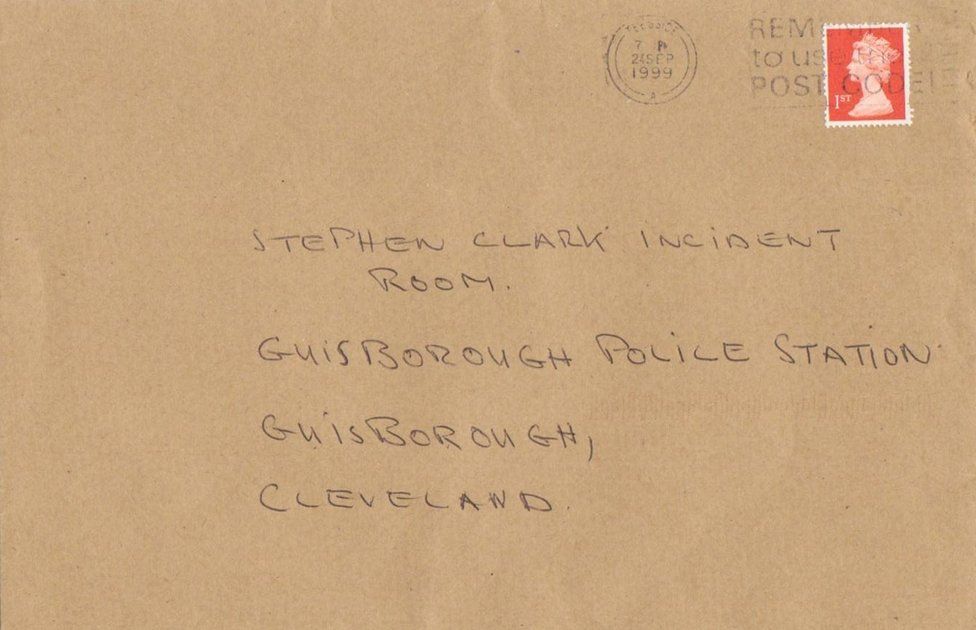 TEESSIDE
7 PM
24 SEP
1999
A
to use the
POST CODE!
1ST
STEPHEN CLARK INCIDENT
ROOM.
GUISBOROUGH POLICE STATION
GUISBOROUGH,
CLEVELAND.